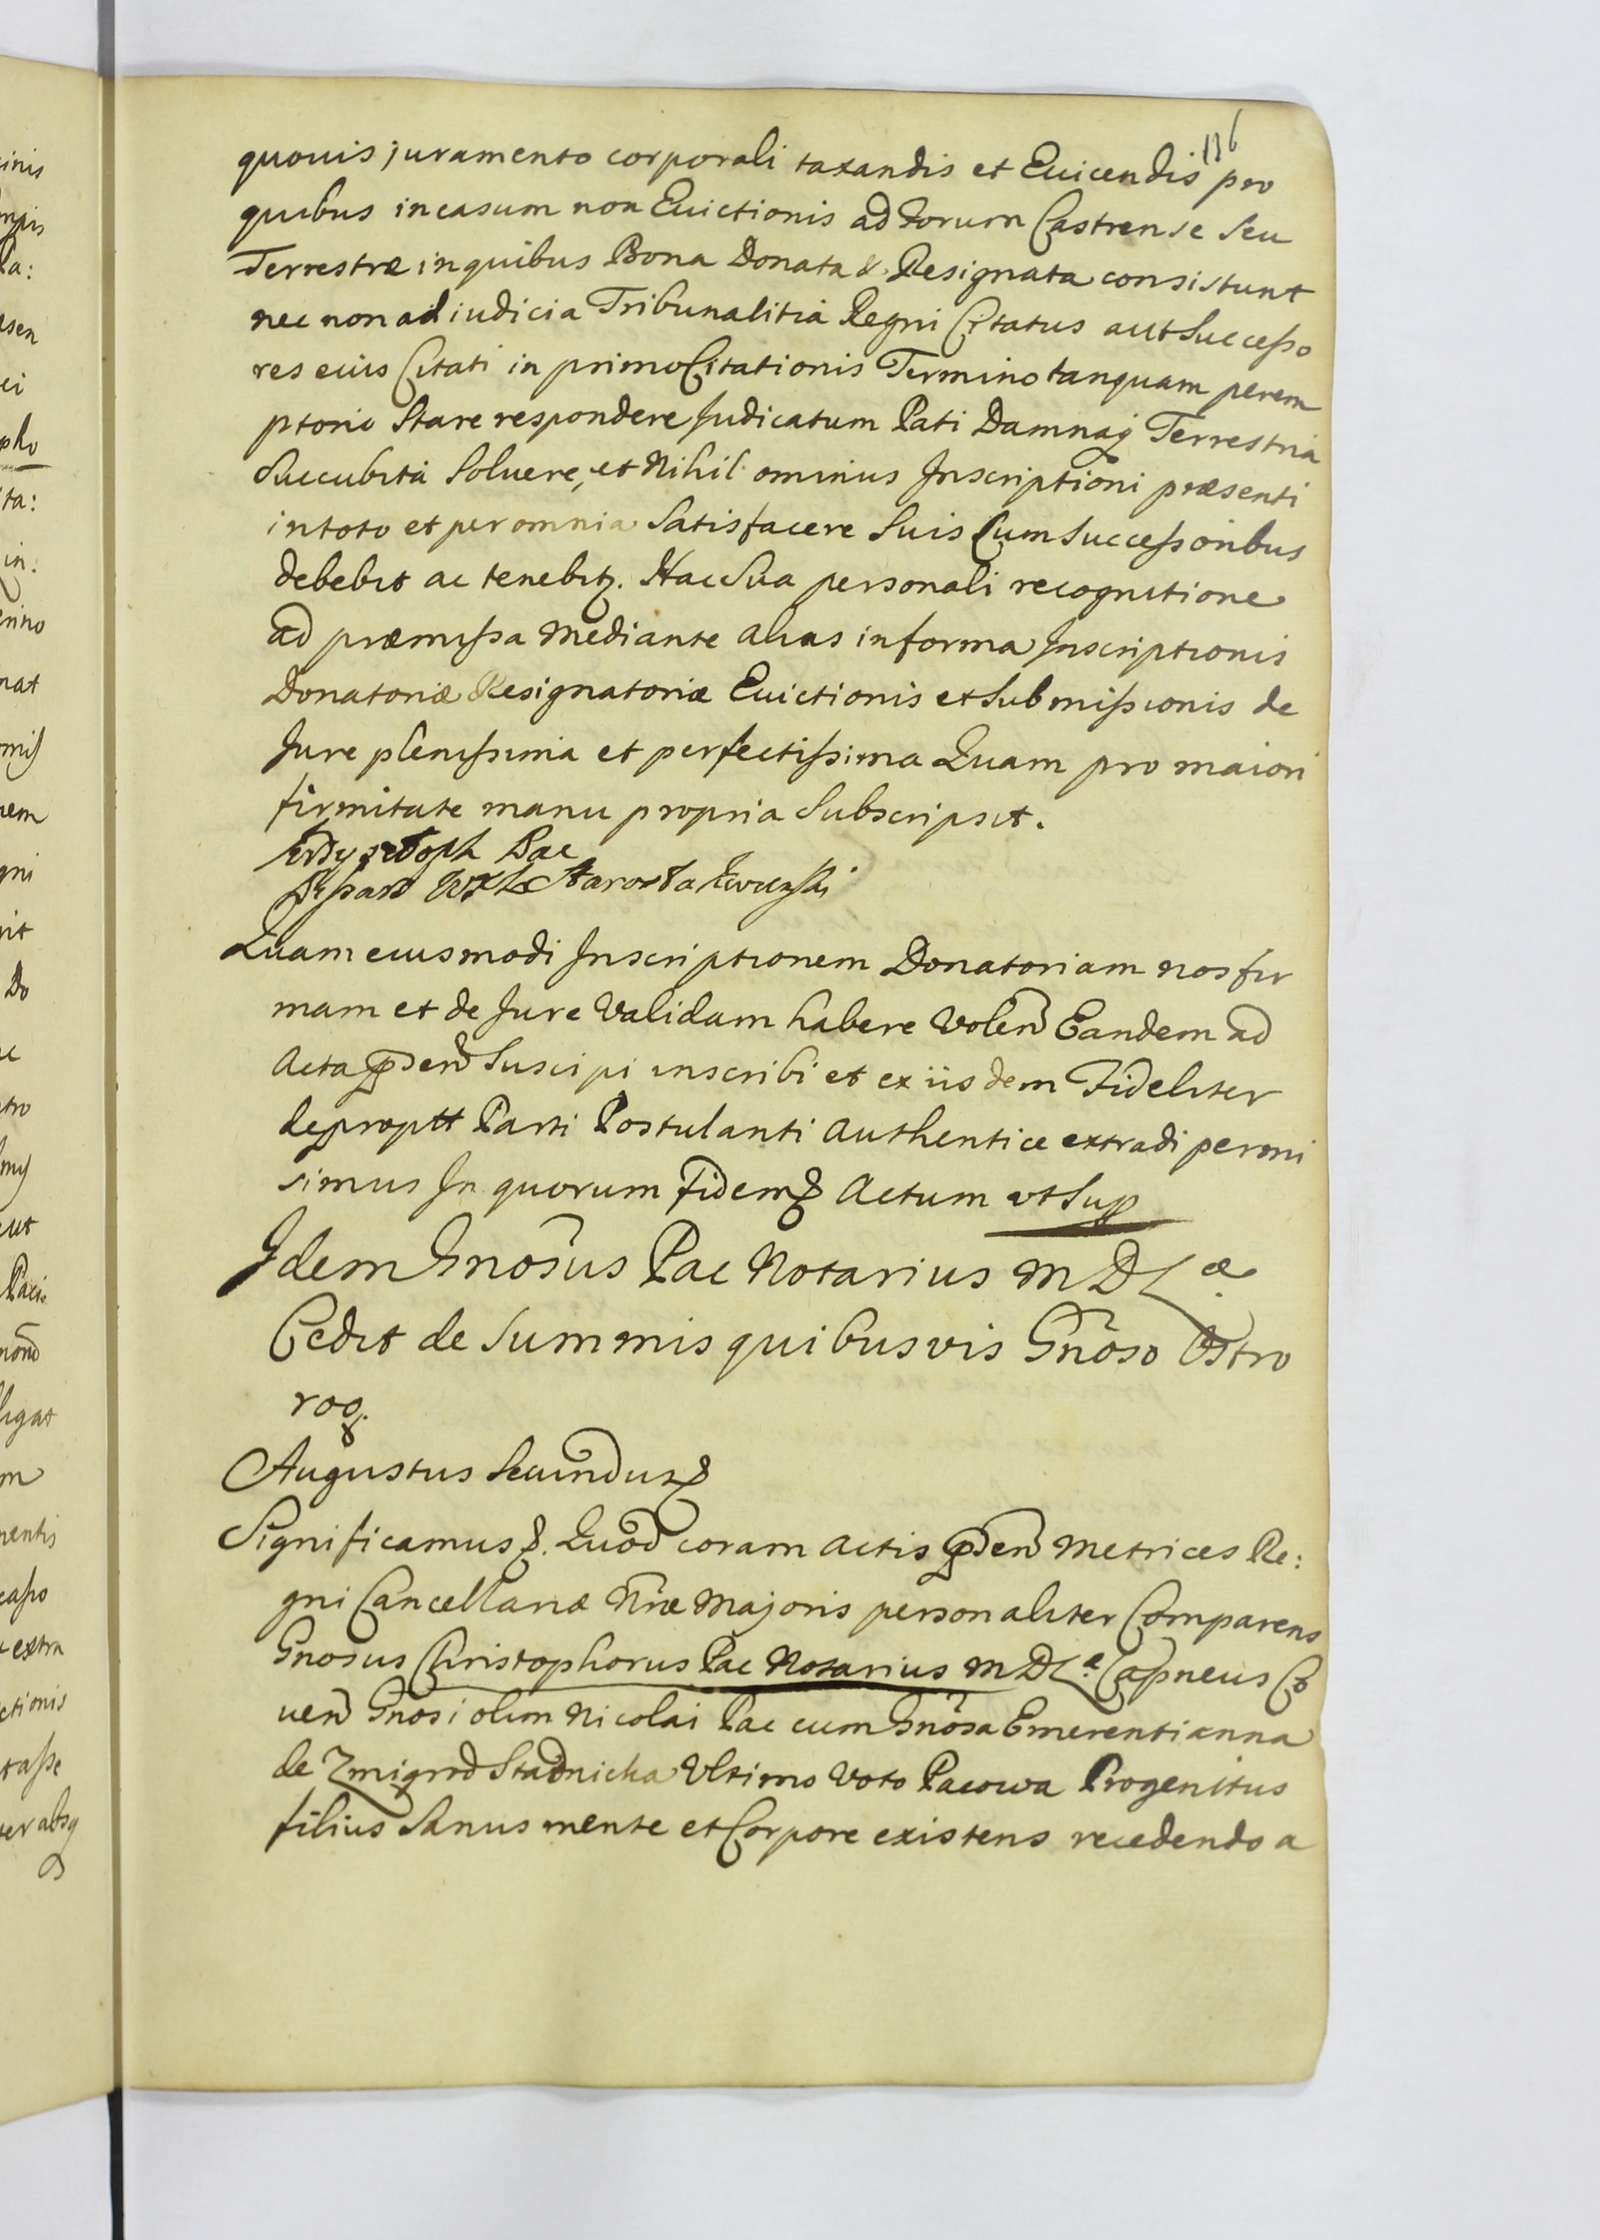 136
quouis juramento corporali taxandis et Euicendis pro
quibus in casum non Euictionis ad Forum Castrense Seu
Terrestræ in quibus Bona Donata & Resignata consistunt
nec non ad iudicia Tribunalitia Regni Citatus aut Successo
res eius Citati in primo Citationis Termino tanquam perem
ptorio Stare respondere Judicatum Pati Damnaq Terrestria
Succubita Soluere, et Nihil ominus Inscriptioni præsenti
in toto et per omnia Satisfacere Suis Cum Successoribus
debebit ac tenebitꝫ. Hac Sua personali recognitione
ad præmissa Mediante alias in forma Inscriptionis
Donatoriæ Resignatoriæ Euictionis et Submissionis de
Jure plenissima et perfectissima Quam pro maiori
firmitate manu propria Subscripsit.
Pac
Pissarz WXL Starosta
Quam eiusmodi Inscriptionem Donatoriam nos fir
mam et de Jure Validam habere Volen Eandem ad
Acta Suscipi inscribi et ex iisdem Fideliter
deproptt Parti Postulanti Authentice extradi permi
simus In quorum fidem Actum ut Sup
Idem Gnosus Pac Notarius M D L æ
Cedit de Summis quibusvis Gnoso Ostro
rog.
Augustus Secundus
Significamus. Quod coram Actis Metrices Re:
gni Cancellariæ Nræ Majoris personaliter Comparens
Gnosus Christophorus Pac Notarius M D L æ Capneus
uen Gnosi olim Nicolai Pac cum Gnosa Emerentianna
de Zmigrod Stadnicka Ultimo Voto Pacowa Progenitus
filius Sanus mente et Corpore existens recedendo a